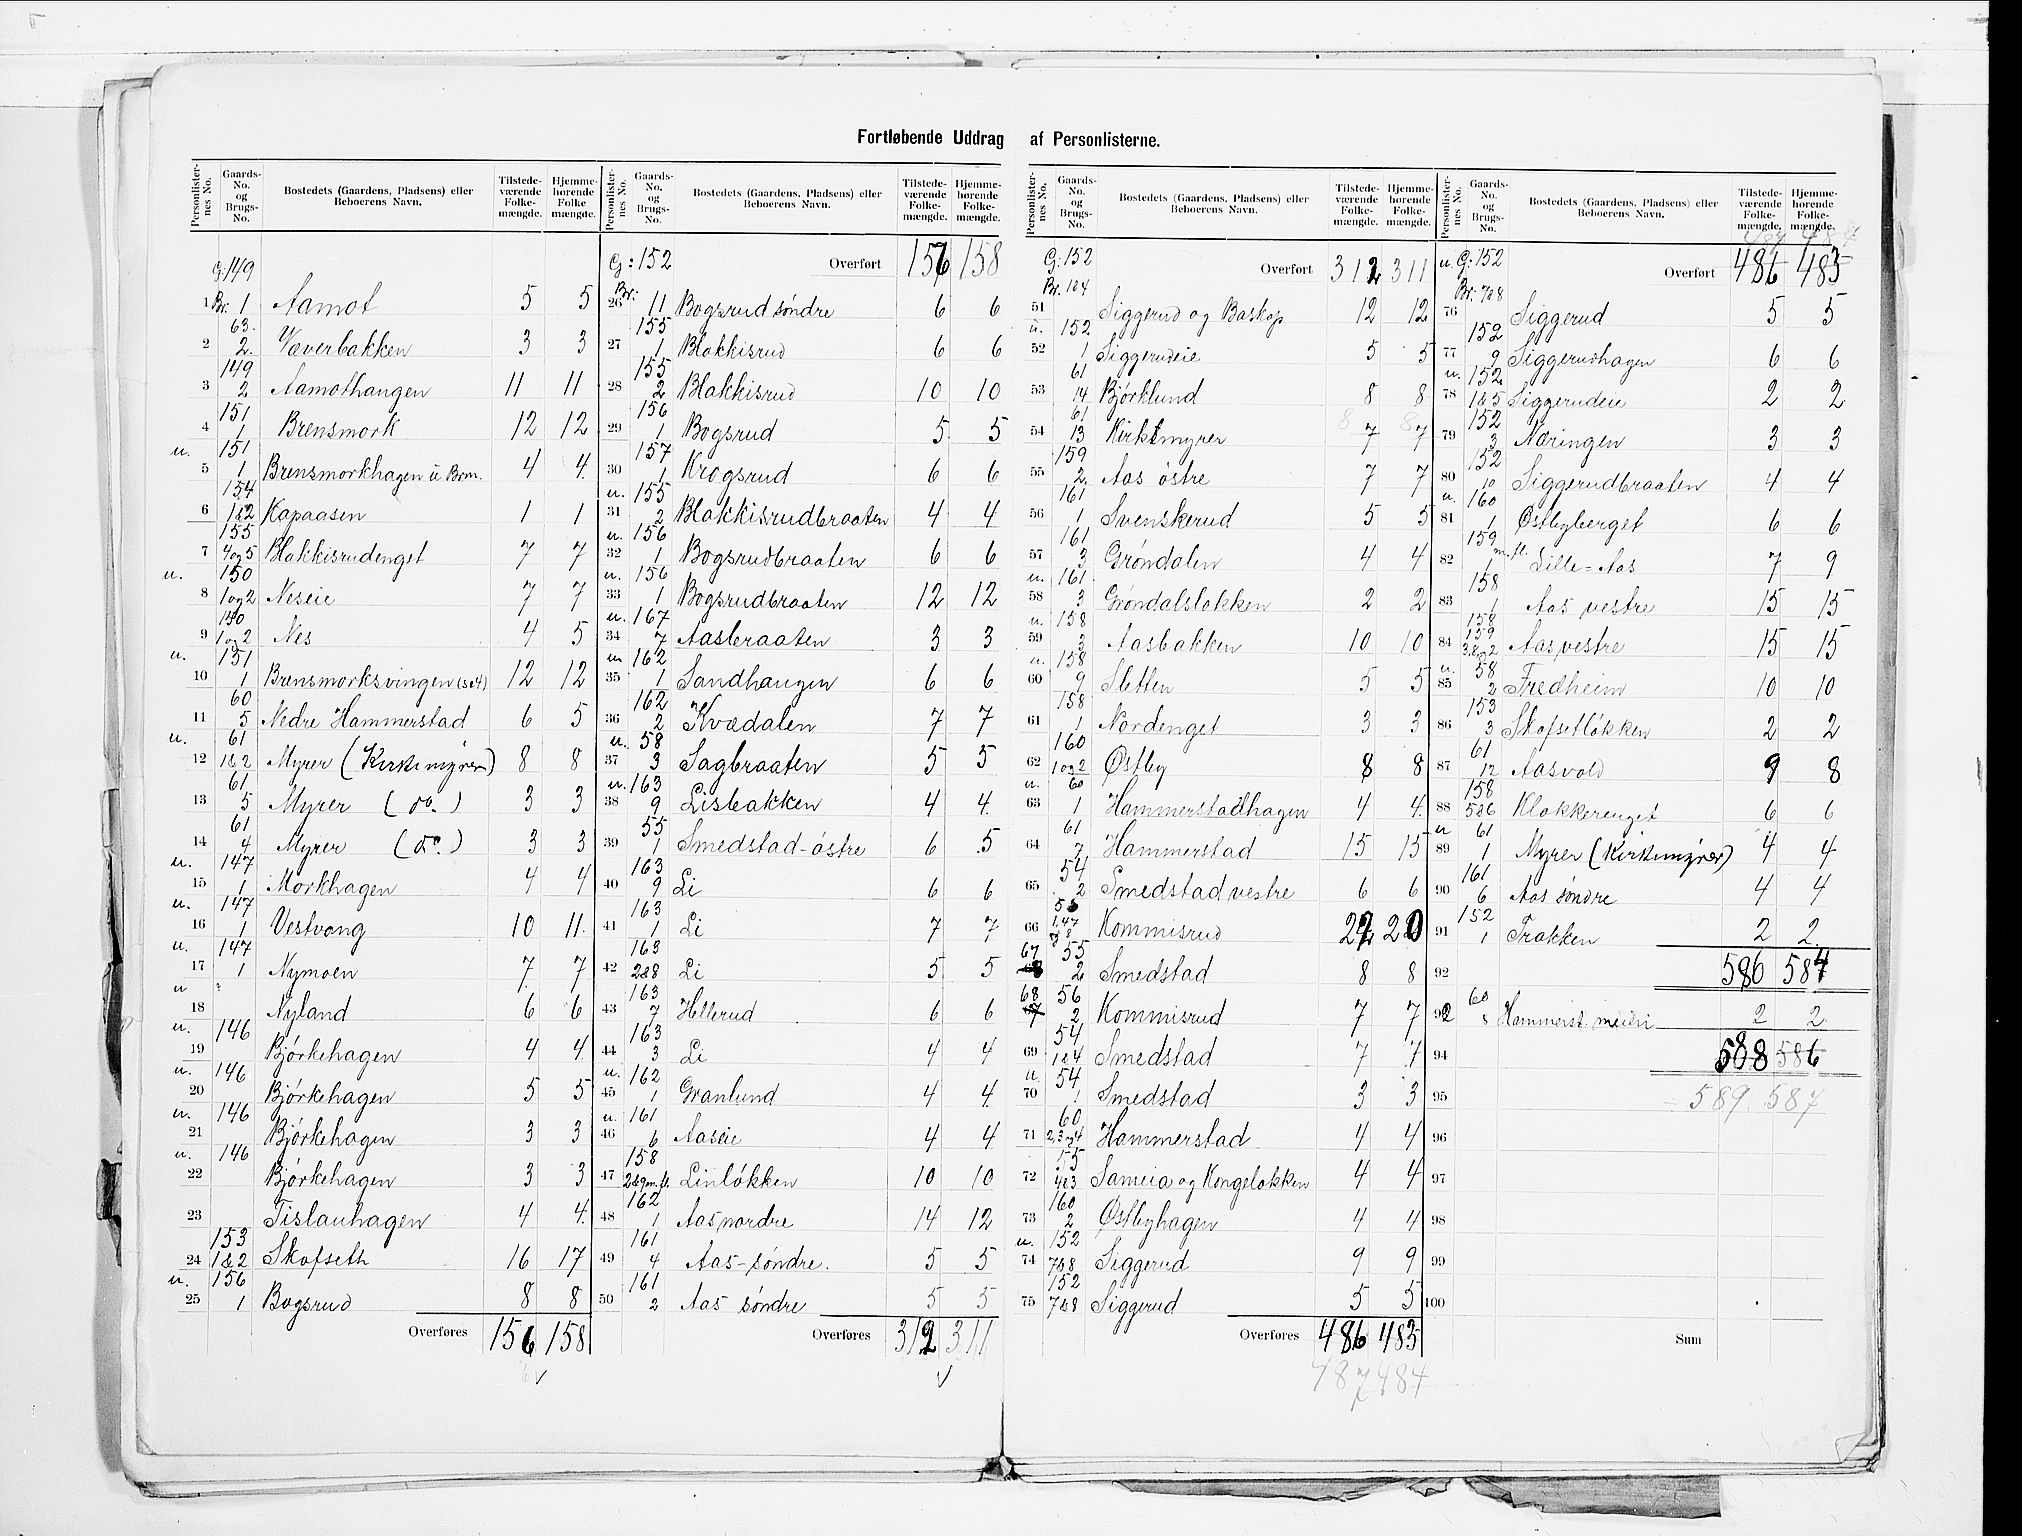 Fortløbende Uddrag af Personlisterne.
Personlisternes No. Gaards-No. og Brugs-No. Bostedets (Gaardens, Pladsens) eller Beboerens Navn. Tilstedeværende Folkemængde. Hjemmehørende Folkemængde.
G: 149
1 Br: 1 Aamot 5 5
2 63. 2. Væverbakken 3 3
3 149 2 Aamothaugen 11 11
4 151 1 Brensmork 12 12
5 u. 151 1 Brensmorkhagen u Brm. 4 4
6 154 1&2 Kapaasen 1 1
7 155 4og5 Blakkisrudenget 7 7
8 u. 150 1og2 Neseie 7 7
9 150 1og2 Nes 4 5
10 u. 151 1 Brensmorksvingen (se4) 12 12
11 60 5 Nedre Hammerstad 6 5
12 u. 61 1&2 Myrer (Kirkemyrer) 8 8
13 61 5 Myrer (do.) 3 3
14 61 4 Myrer (do.) 3 3
15 u. 147 1 Morkhagen 4 4
16 u. 147 1 Vestvang 10 11
17 u. 147 1 Nymoen 7 7
18 u Nyland 6 6
19 u. 146 Bjørkehagen 4 4
20 u. 146 Bjørkehagen 5 5
21 u. 146 Bjørkehagen 3 3
22 u. 146 Bjørkehagen 3 3
23 Tislauhagen 4 4
24 153 1&2 Skofseth 16 17
25 u. 156 1 Bogsrud 8 8
Overføres 156 158
Personlisternes No. Gaards-No. og Brugs-No. Bostedets (Gaardens, Pladsens) eller Beboerens Navn. Tilstedeværende Folkemængde. Hjemmehørende Folkemængde.
G: 152 Overført 156 158
26 Br: 11 Bogsrud søndre 6 6
27 155 1 Blakkisrud 6 6
28 155 2 Blakkisrud 10 10
29 156 1 Bogsrud 5 5
30 157 1 Krogsrud 6 6
31 u. 155 2 Blakkisrudbraaten 4 4
32 u. 156 1 Bogsrudbraaten 6 6
33 u. 156 1 Bogsrudbraaten 12 12
34 u. 167 7 Aasbraaten 3 3
35 u 162 1 Sandhaugen 6 6
36 162 2 Kvædalen 7 7
37 u. 58 3 Sagbraaten 5 5
38 u. 163 9 Lisbakken 4 4
39 55 1 Smedstad-østre 6 5
40 163 9 Li 6 6
41 163 1 Li 7 7
42 163 2&8 Li 5 5
43 163 7 Hellerud 6 6
44 163 3 Li 4 4
45 u. 162 1 Granlund 4 4
46 u. 161 6 Aaseie 4 4
47 158 2&9 m.fl. Linløkken 10 10
48 162 1 Aas nordre 14 12
49 161 4 Aas-søndre. 5 5
50 161 2 Aas søndre 5 5
Overføres 312 311
Personlisternes No. Gaards-No. og Brugs-No. Bostedets (Gaardens, Pladsens) eller Beboerens Navn. Tilstedeværende Folkemængde. Hjemmehørende Folkemængde.
G: 152 Overført 312 311
51 Br. 1&4 Siggerud og Baskop 12 12
52 u. 152 1 Siggerudeie 5 5
53 61 14 Bjørklund 8 8
54 61 13 Kirkemyrer 8 7 8 7
55 159 2. Aas østre 7 7
56 161 1 Svenskerud 5 5
57 161 3 Grøndalen 4 4
58 u. 161 3 Grøndalsløkken 2 2
59 u. 158 3 Aasbakken 10 10
60 u. 158 9 Sletten 5 5
61 158 1 Nordenget 3 3
62 160 1og2 Østby 8 8
63 u. 60 1 Hammerstadhagen 4 4
64 61 7 Hammerstad 15 15
65 54 2 Smedstad vestre 6 6
66 Kommisrud 22 20
67 55 2 Smedstad 8 8
68 56 2 Kommisrud 7 7
69 54 1&4 Smedstad 7 7
70 u. 54 1 Smedstad 3 3
71 60 2,3og4 Hammerstad 4 4
72 55 4&3 Sameia og Kongeløkken 4 4
73 160 2 Østbyhagen 4 4
74 u. 152 7&8 Siggerud 9 9
75 152 7&8 Siggerud 5 5
Overføres 486 483
487 484
Personlisternes No. Gaards-No. og Brugs-No. Bostedets (Gaardens, Pladsens) eller Beboerens Navn. Tilstedeværende Folkemængde. Hjemmehørende Folkemængde.
u. G: 152 Overført 486 483
76 Br: 7&8 Siggerud 5 5
77 152 9 Siggerudhagen 6 6
78 u. 152 1&5 Siggerudeie 2 2
79 152 3 Næringen 3 3
80 152 10 Siggerudbraaten 4 4
81 u. 160 1 Østbyberget 6 6
82 159 1 m.fl. Lille=Aas 7 9
83 158 1 Aas vestre 15 15
84 158 159 3.8og2 Aas vestre 15 15
85 u 58 2 Fredheim 10 10
86 153 3 Skofsetløkken 2 2
87 61 12 Aasvold 9 8
88 158 5&6 Klokkerenget 6 6
89 u 61 1 Myrer (Kirkemyrer) 4 4
90 161 6 Aas søndre 4 4
91 152 1 Trakken 2 2
92 586 584
92 60 8 Hammerst. meieri 2 2
94 588 586
95 589. 587
96
97
98
99
100
Sum